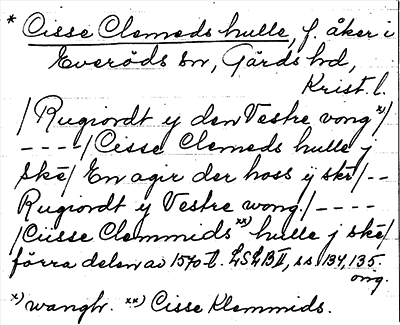 * Cisse Clemeds hulle, f. åker i
Everöds sn, Gärds hd,
Krist. l.
/Rugiordt y den Vestre vong x)/
----/Cisse Clemeds hulle j
ské/ En agir der hoss ij ské/--
Rugiordt y Vestre wong./----
/Ciisse Clemmids xx) hulle j ské/
förra delen av 1570-t. LSLB II, ss. 134, 135.
orig.
x) wanghr. xx) Cisse Klemmids.